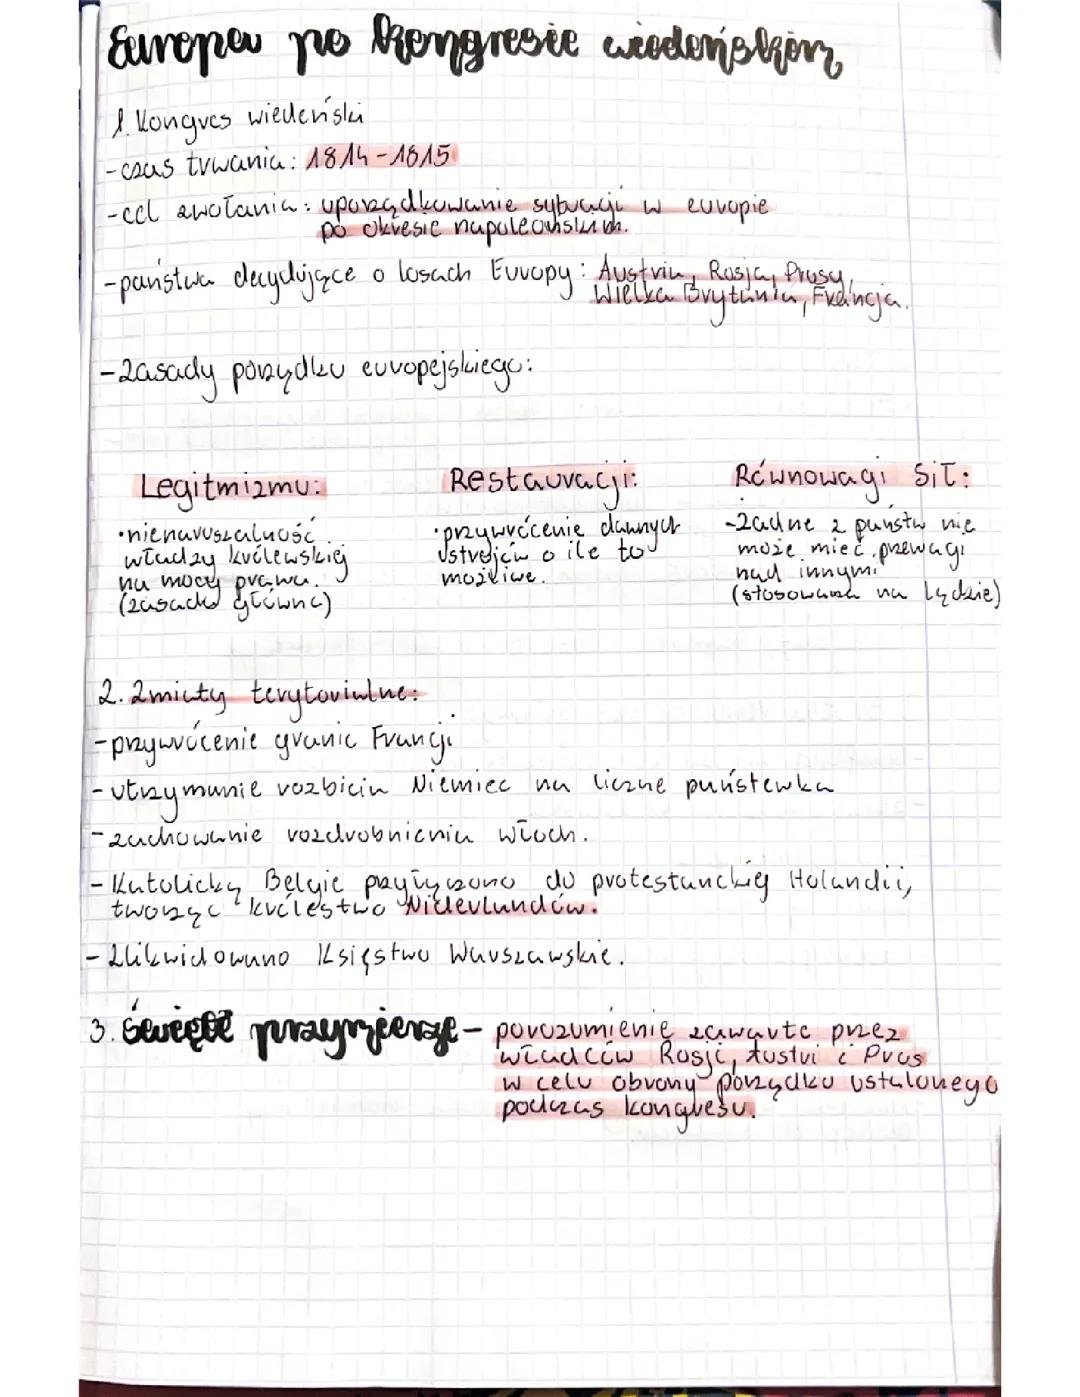 Europa po kongresie wiedeńskim
1. Kongres wiedeński
-czas trwania: 1814-1815
-cel zwołania: uporządkowanie sytuacji w europie
po okresie napoleońskim.
-państwa decydujące o losach Europy: Austria, Rosja, Prusy,
Wielka Brytania, Francja.
-zasady porządku europejskiego:
Legitmizmu:
•nienaruszalność
władzy królewskiej
na mocy prawa.
(zasada główna)
Restauracji:
•przywrócenie dawnych
ustrojów o ile to
możliwe.
Równowagi sił:
-żadne z państw nie
może mieć przewagi
nad innymi
(stosowana na lądzie)
2. Zmiany terytorialne:
-przywrócenie granic Francji
-utrzymanie rozbicia Niemiec na liczne państewka
-zachowanie rozdrobnienia włoch.
-Katolicką Belgię przyłączono do protestanckiej Holandii,
tworząc królestwo Niderlandów.
-Zlikwidowano Księstwo Warszawskie.
3. Święte przymierze - porozumienie zawarte przez
władców Rosji, Austri i Prus
w celu obrony porządku ustalonego
podczas kongresu.